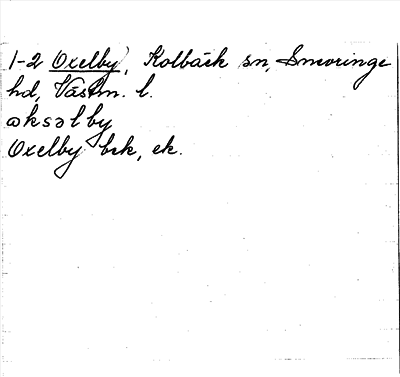 1-2 Oxelby, Kolbäck sn, Snevringe
hd, Västm. l.
ɷksəlby
Oxelby brk, ek.